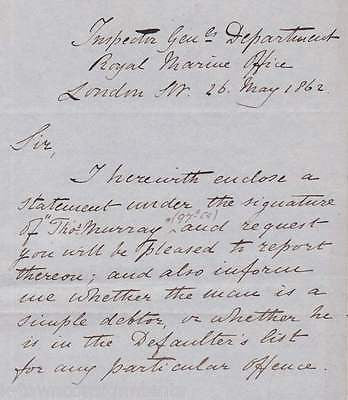 Inspector Genls Department
Royal Marine Office
London SW. 26 May 1862
Sir,
I herewith enclose a
statement under the signature
of "Thos Murray (97th Co) and request
you will be pleased to report
thereon; and also inform
me whether the man is a
simple debtor, or whether he
is in the Defaulter's list
for any particular offence.